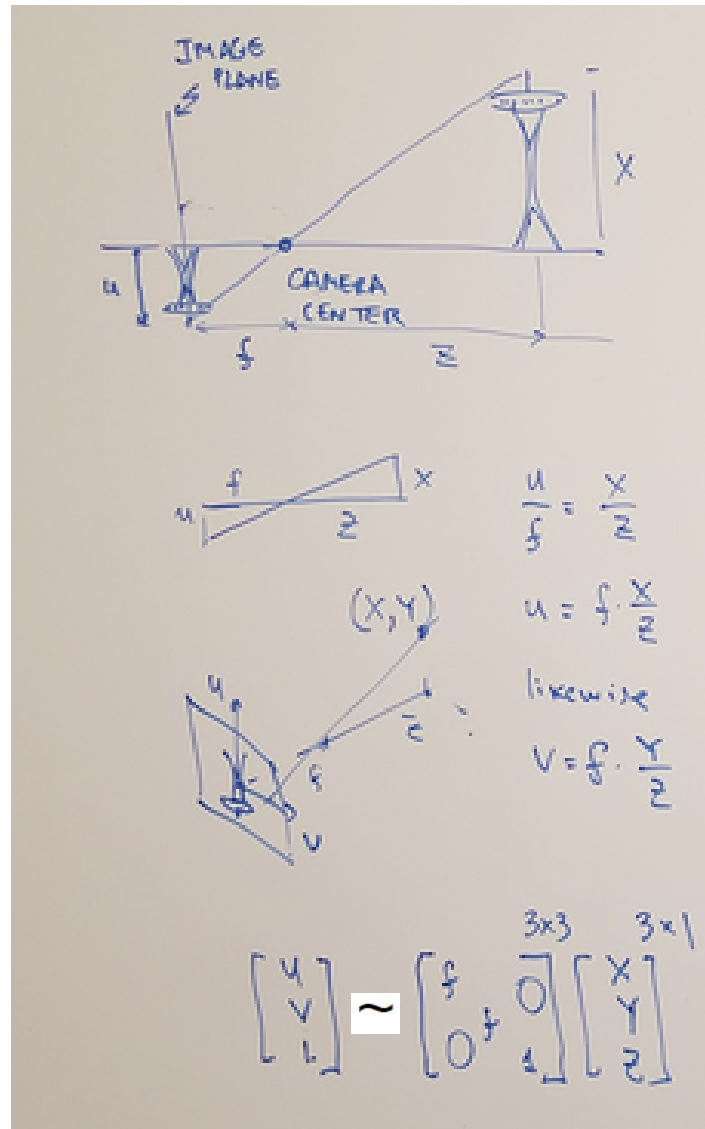 IMAGE
PLANE
X
u
CAMERA
CENTER
f
Z
f
X
u
Z
u/f = X/Z
(X,Y)
u = f · X/Z
u
likewise
Z
f
V = f · Y/Z
V
3x3 3x1
[u V 1] ~ [f 0 f 0 1] [X Y Z]